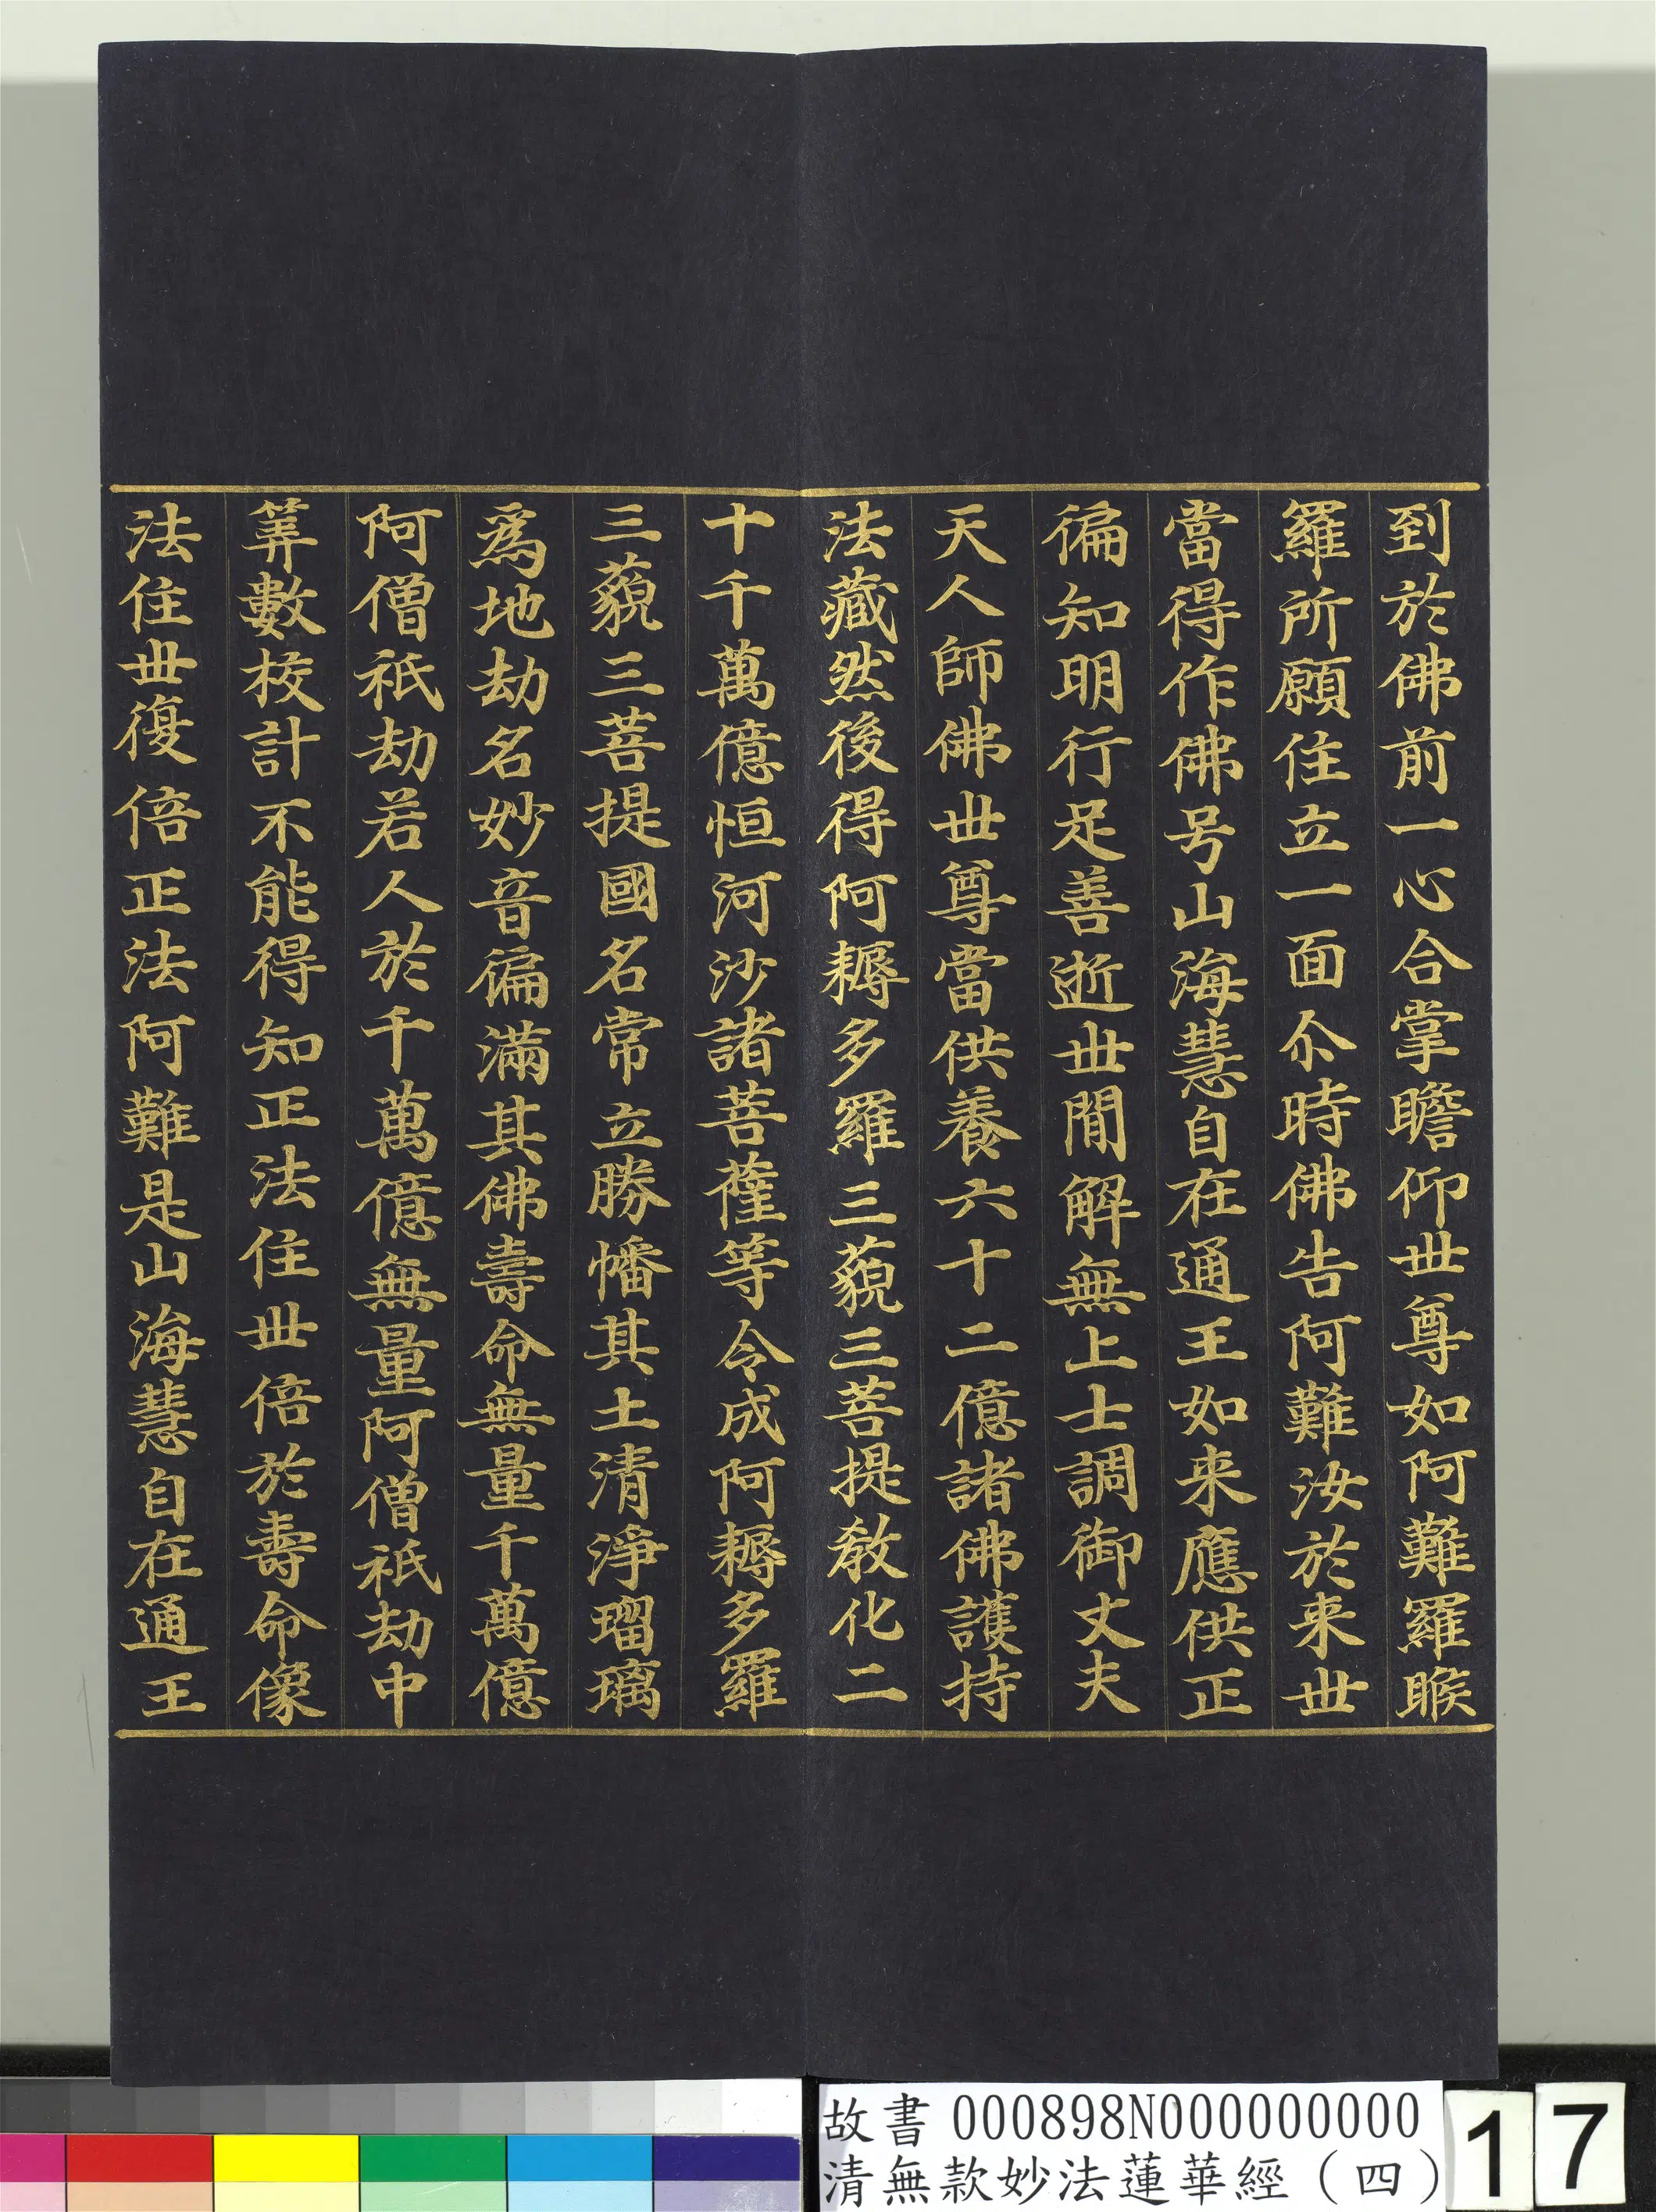 到於佛前一心合掌瞻仰世尊如阿難羅睺
羅所願住立一面尒時佛告阿難汝於来世
當得作佛号山海慧自在通王如来應供正
徧知明行足善逝世閒解無上士調御丈夫
天人師佛世尊當供養六十二億諸佛護持
法藏然後得阿耨多羅三藐三菩提教化二
十千萬億恒河沙諸菩薩等令成阿耨多羅
三藐三菩提國名常立勝幡其土清淨瑠璃
爲地劫名妙音徧滿其佛壽命無量千萬億
阿僧祇劫若人於千萬億無量阿僧祇劫中
筭數校計不能得知正法住世倍於壽命像
法住世復倍正法阿難是山海慧自在通王
故書 000898N000000000
清無款妙法蓮華經（四）
17